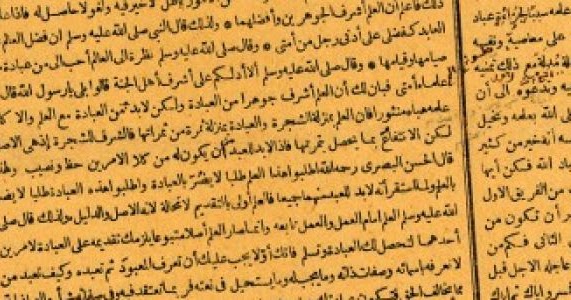 ذلك فاعلم أن العلم أشرف الجوهرين وأفضلهما * ولذلك قال النبي صلى الله عليه وسلم ان فضل العالم
العابد كفضلى على أدنى رجل من أمتى * وقال صلى الله عليه وسلم نظرة الى العالم أحب الى من عبادة
صيامها وقيامها * وقال صلى الله عليه وسلم ألا أدلكم على أشرف أهل الجنة قالوا بلى يا رسول الله قال
علماء أمتى فبان لك أن العلم أشرف جوهرا من العبادة ولكن لابد من العبادة مع العلم والا
علمه هباء منثورا فان العلم بمنزلة الشجرة والعبادة بمنزلة ثمرة من ثمراتها فالشرف للشجرة اذ هى الاصل
لكن الانتفاع بما يحصل بثمرتها فاذا لابد للعبد أن يكون له من كلا الامرين حظ ونصيب
قال الحسن البصرى رحمه الله اطلبوا هذا العلم طلبا لا يضر بالعبادة واطلبوا هذه العبادة طلبا لا يضر
بالعلم ولما استقر أنه لابد للعبد منهما جميعا فالعلم أولى بالتقديم لا محالة لانه الاصل والدليل ولذلك قال صلى
الله عليه وسلم العلم امام العمل والعمل تابعه وانما صار العلم أصلا متبوعا يلزمك تقديمه على العبادة لامرين
أحدهما لتحصل لك العبادة وتسلم فانك أولا يجب عليك أن تعرف المعبود ثم تعبده وكيف تعبد من
لا تعرفه باسمائه وصفات ذاته وما يجب له وما يستحيل فى نعته فربما تعتقد فيه وفى صفاته
على معصية ونفسه
مع ذلك
وتدعوه الى أن
على الله بعلمه
أنه خير من كثير
عباد الله فكن أيها
من الفريق الاول
أن تكون من
الثانى فكم من
عاجله الاجل قبل